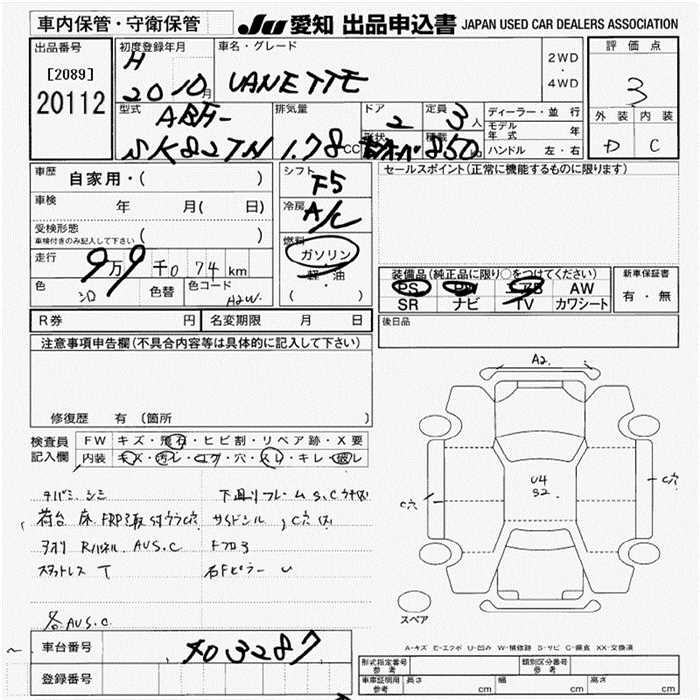 車内保管・守衛保管
JU 愛知 出品申込書 JAPAN USED CAR DEALERS ASSOCIATION
出品番号
[2089]
20112
初度登録年月
H
2010月
車名・グレード
VANETTE
2WD
・
4WD
評価点
3
外装 内装
D C
型式
ABF-
SK82TN
排気量
1.78cc
ドア
2
定員
3人
形状
積載
850kg
ディーラー・並行
モデル年式 年
ハンドル 左・右
車歴
自家用・( )
車検
年 月( 日)
受検形態
車検付きのみ記入して下さい ( )
走行
9万9千074km
色
シロ
色替
色コード
A2W
シフト
F5
冷房
A/C
燃料
ガソリン
軽・油
( ・ )
セールスポイント(正常に機能するものに限ります)
装備品(純正品に限り○をつけてください)
PS PW エアB AW
SR ナビ TV カワシート
新車保証書
有・無
R券 円 名変期限 月 日
後日品
注意事項申告欄(不具合内容等は具体的に記入して下さい)
修復歴 有(箇所 )
検査員
記入欄
FW キズ・飛石・ヒビ割・リペア跡・X要
内装 キズ・汚レ・コゲ・穴・スレ・キレ・破レ
下廻りフレームS,C
荷台 床 FRP
アオリ Rパネル AUS.C
Fフロア
スタッドレス T
右Fピラー U
各AUS.C
A2
U4
S2
C穴
C穴
スペア
A-キズ E-エクボ U-凹み W-補修跡 S-サビ C-腐食 XX-交換済
車台番号
403287
登録番号
型式指定番号
参考
類別区分番号
参考
車庫証明用
参考
長さ cm 幅 cm 高さ cm